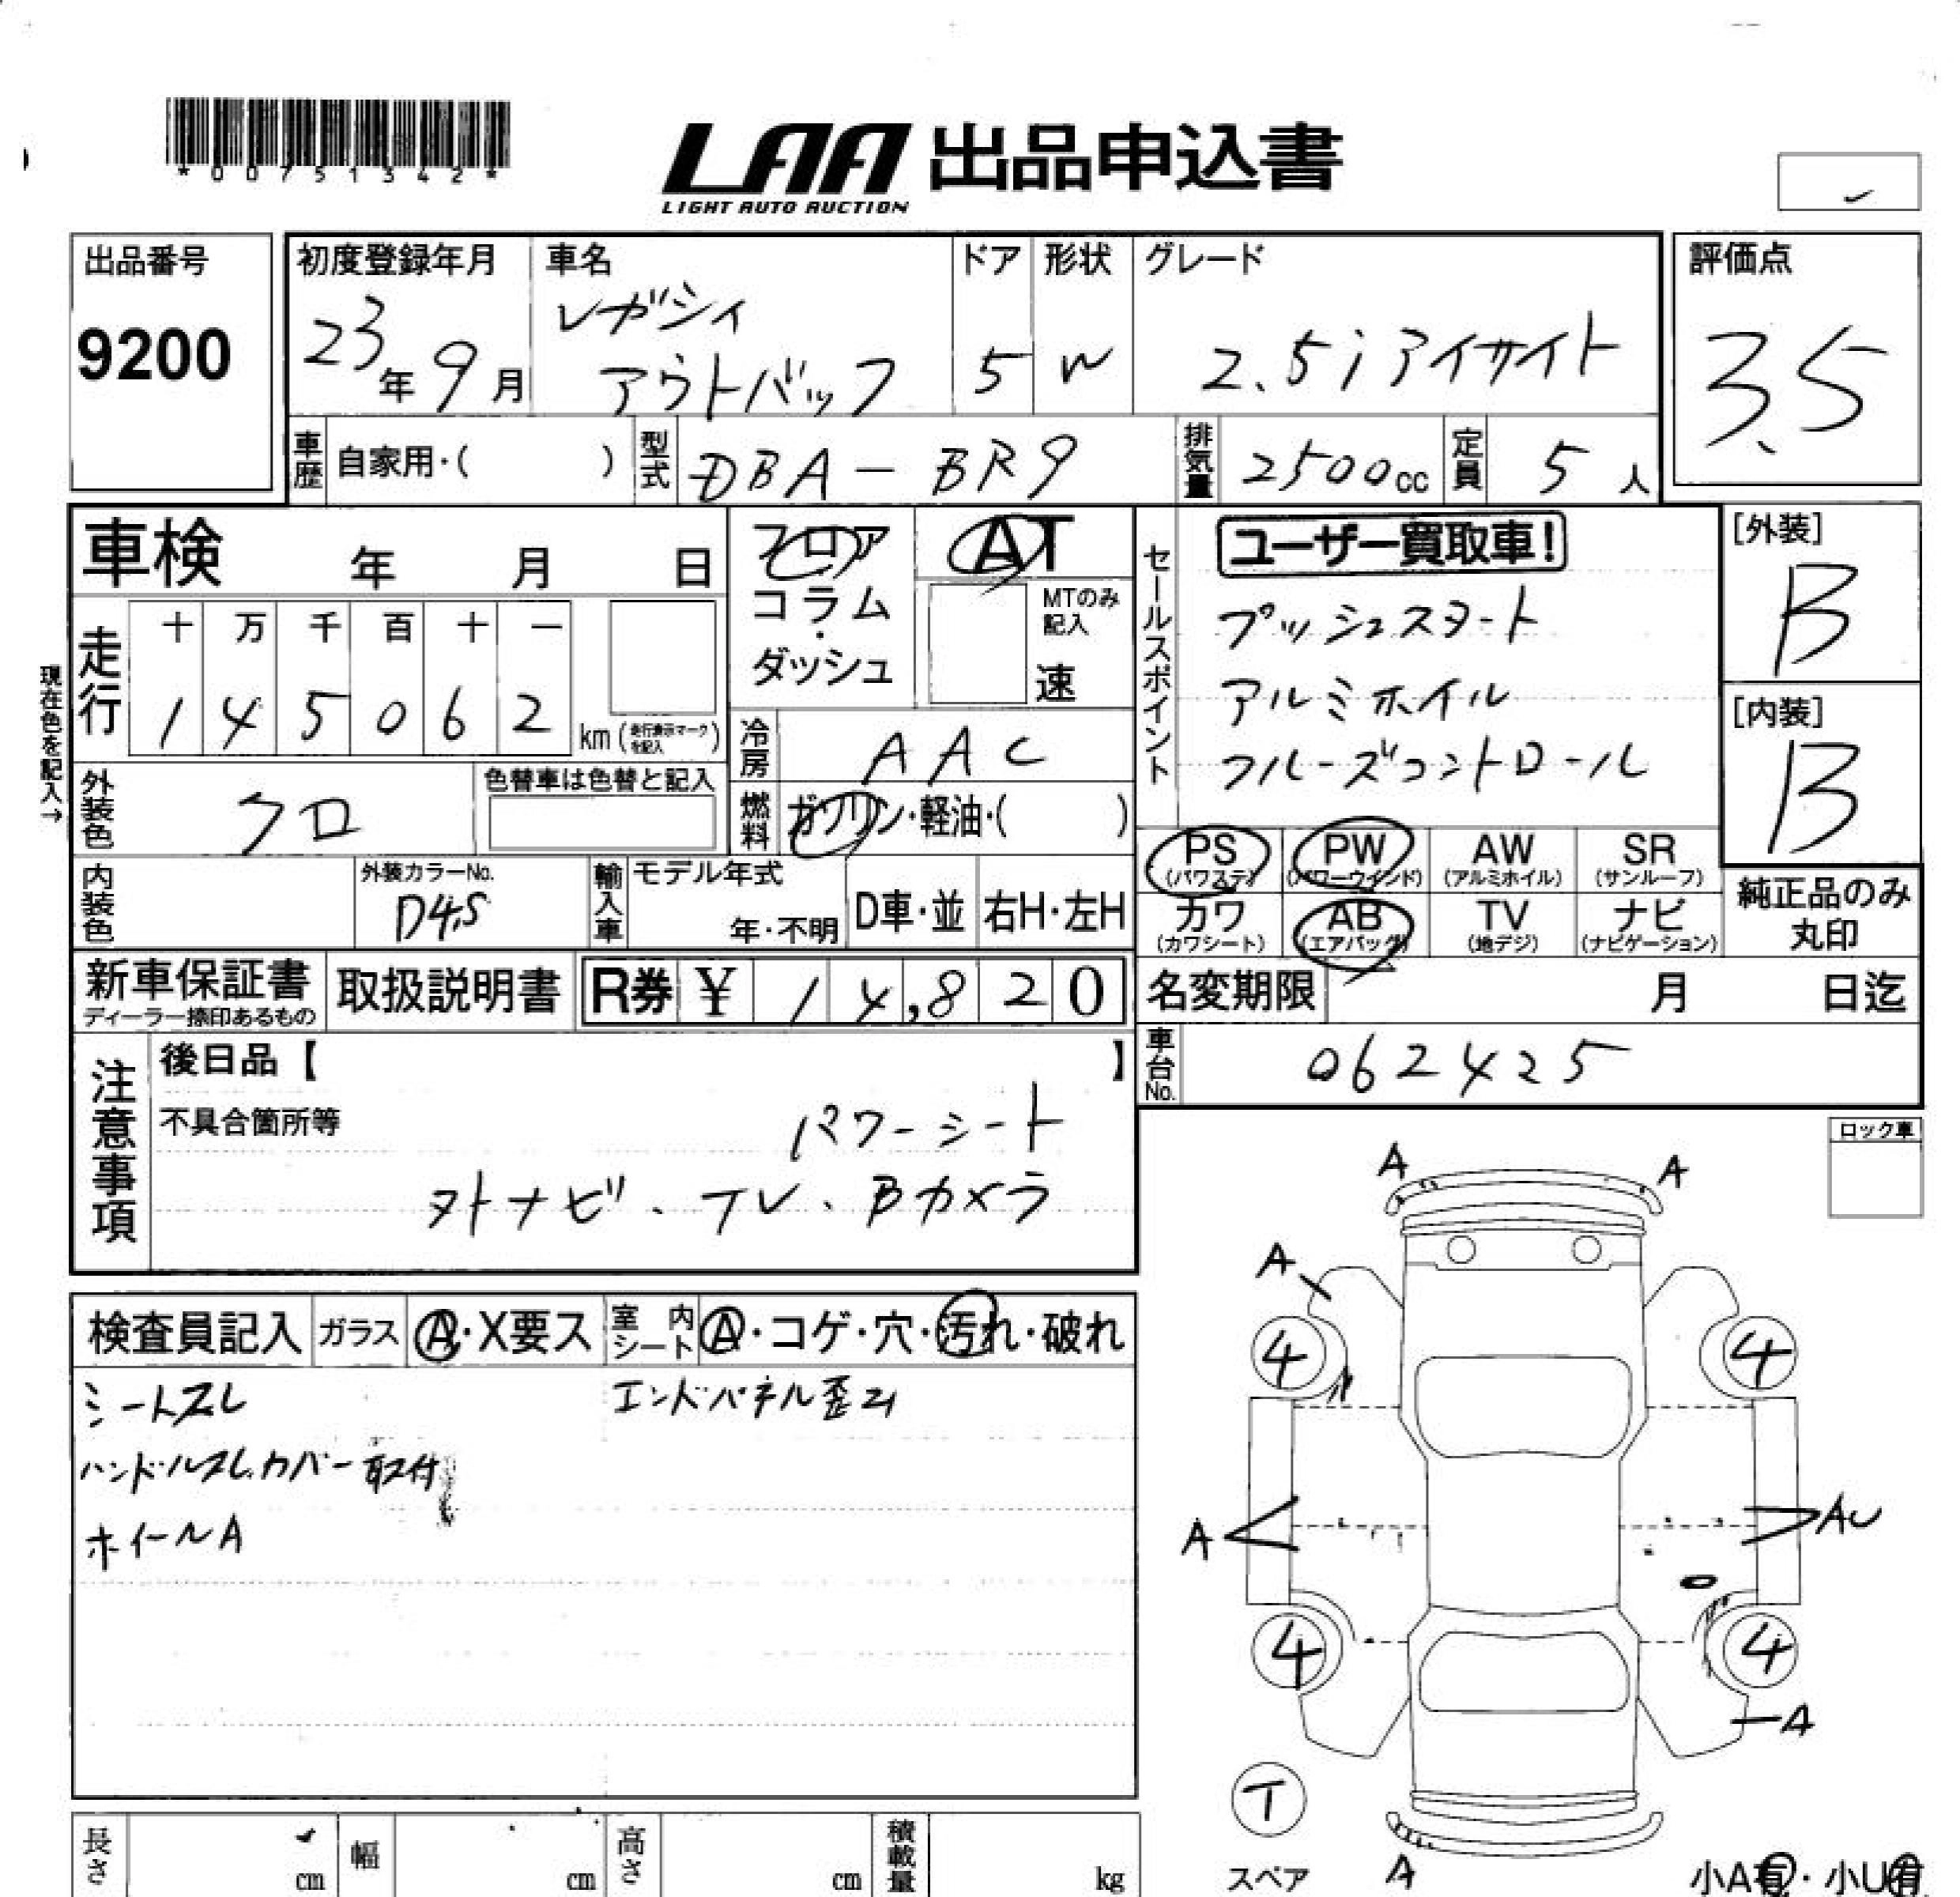 *00751342*
LAA 出品申込書
LIGHT AUTO AUCTION
出品番号
9200
初度登録年月
23年9月
車名
レガシィ
アウトバック
ドア
5
形状
W
グレード
2.5iアイサイト
評価点
3.5
車歴 自家用・( )
型式 DBA-BR9
排気量 2500cc
定員 5人
車検 年 月 日
フロア
コラム
・
ダッシュ
AT
MTのみ
記入
速
現在色を記入→
走行
十 万 千 百 十 一
1 4 5 0 6 2 km(走行表示マークを記入)
冷房 AAC
燃料 ガソリン・軽油・( )
外装色 クロ
色替車は色替と記入
内装色
外装カラーNo.
D4S
輸入車
モデル年式
年・不明
D車・並
右H・左H
セールスポイント
ユーザー買取車!
プッシュスタート
アルミホイル
クルーズコントロール
[外装]
B
[内装]
B
PS
(パワステ)
PW
(パワーウインド)
AW
(アルミホイル)
SR
(サンルーフ)
カワ
(カワシート)
AB
(エアバッグ)
TV
(地デジ)
ナビ
(ナビゲーション)
純正品のみ
丸印
新車保証書
ディーラー捺印あるもの
取扱説明書
R券 ¥ 14,820
名変期限 月 日迄
車台No. 062425
注意事項
後日品【 】
不具合箇所等
パワーシート
ヌトナビ、TV、Bカメラ
ロック車
検査員記入
ガラス
A・X要ス
室内
シート
A・コゲ・穴・汚れ・破れ
シートスレ
エンドパネル歪み
ハンドルスレカバー取付
ホイールA
A
A
A
4
4
A
AU
4
4
A
T
スペア
A
小A有・小U有
長さ cm
幅 cm
高さ cm
積載量 kg